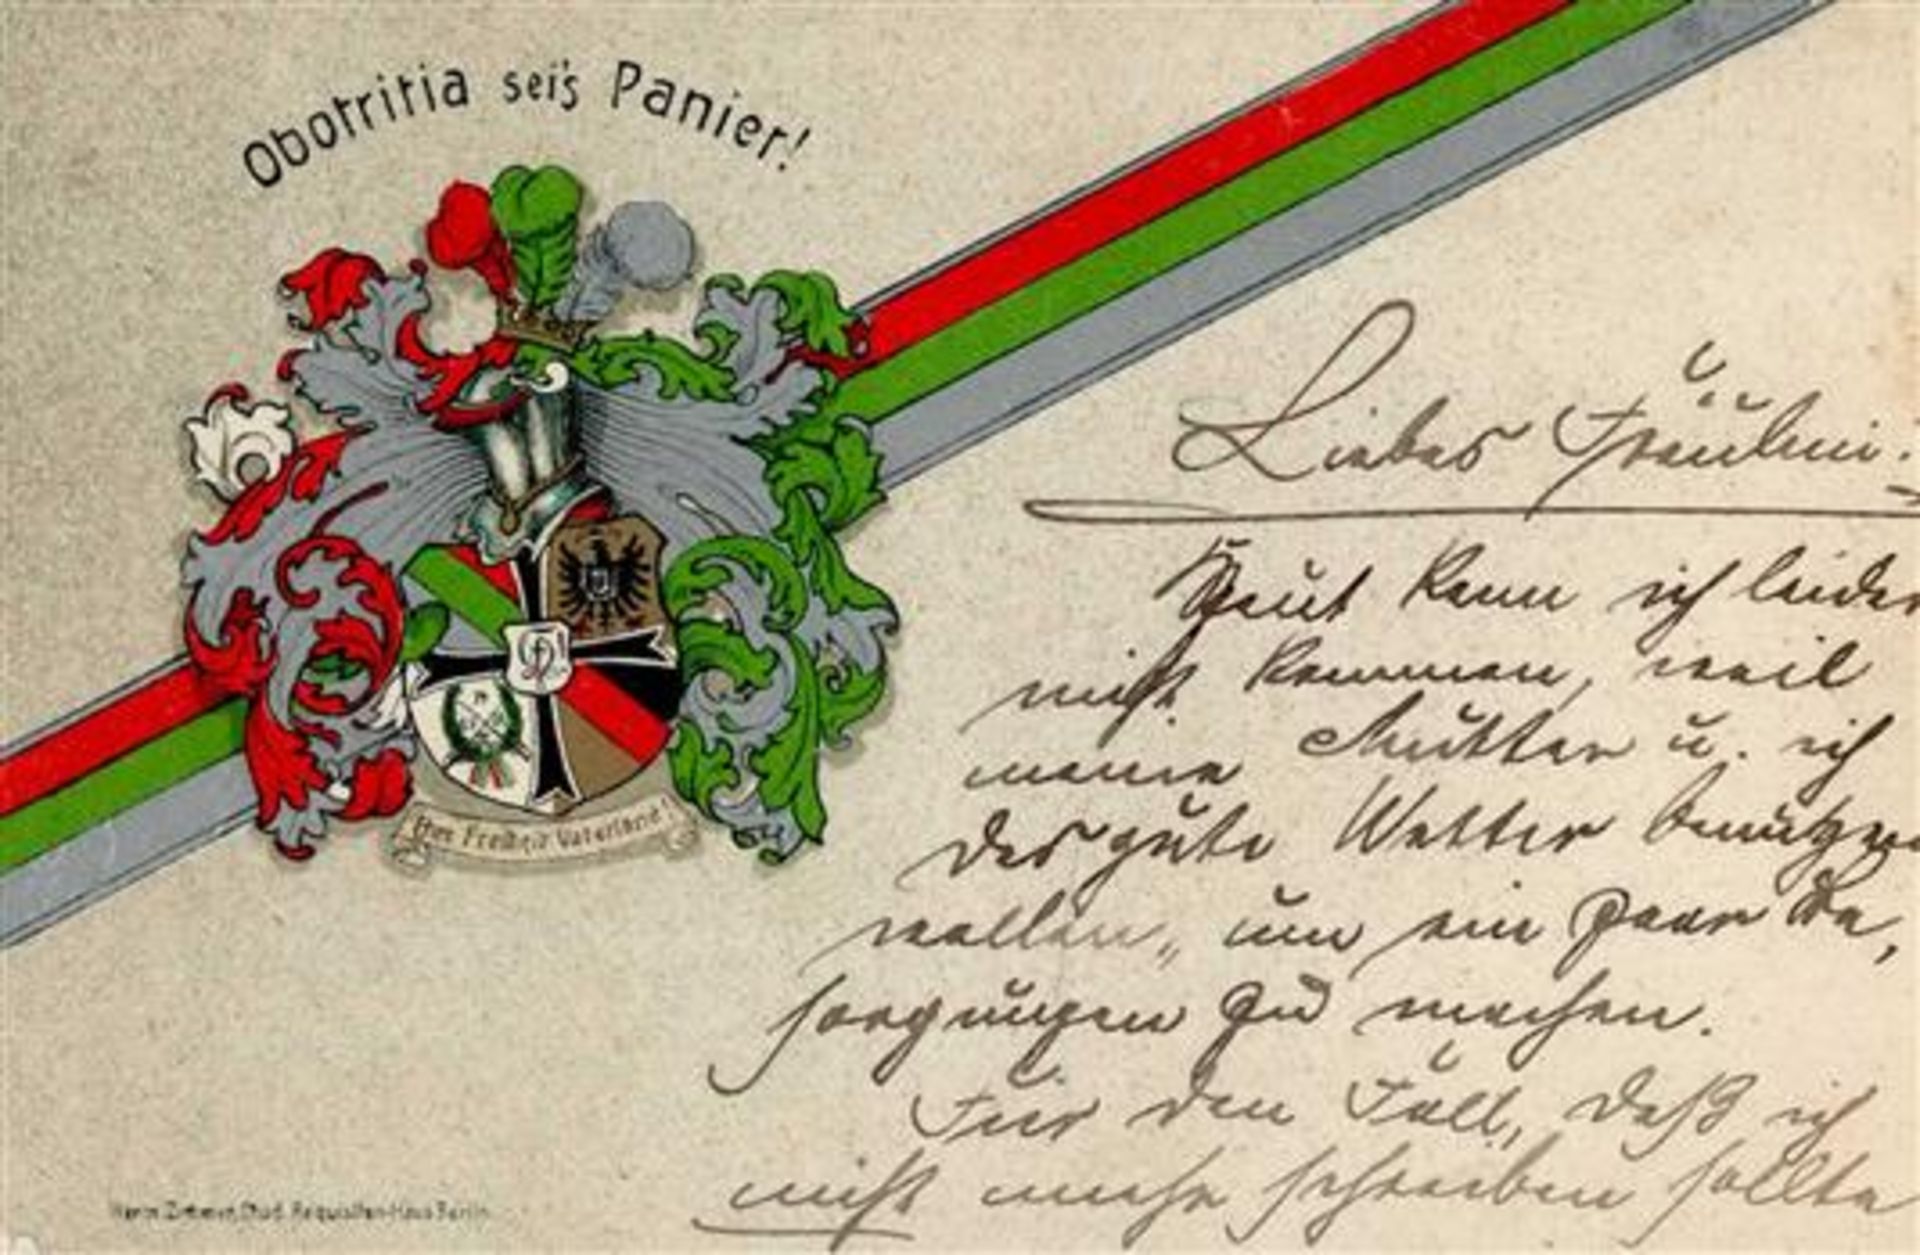 Obotritia sei's Panier!
Ehre Freiheit Vaterland!
Liebes Fräulein!
Heut kann ich leider
nicht kommen, weil
meine Mutter u. ich
das gute Wetter benützen
wollen, um ein paar Be,
sorgungen zu machen.
Für den Fall, daß ich
nicht mehr schreiben sollte
Stud. Requisiten-Haus Berlin